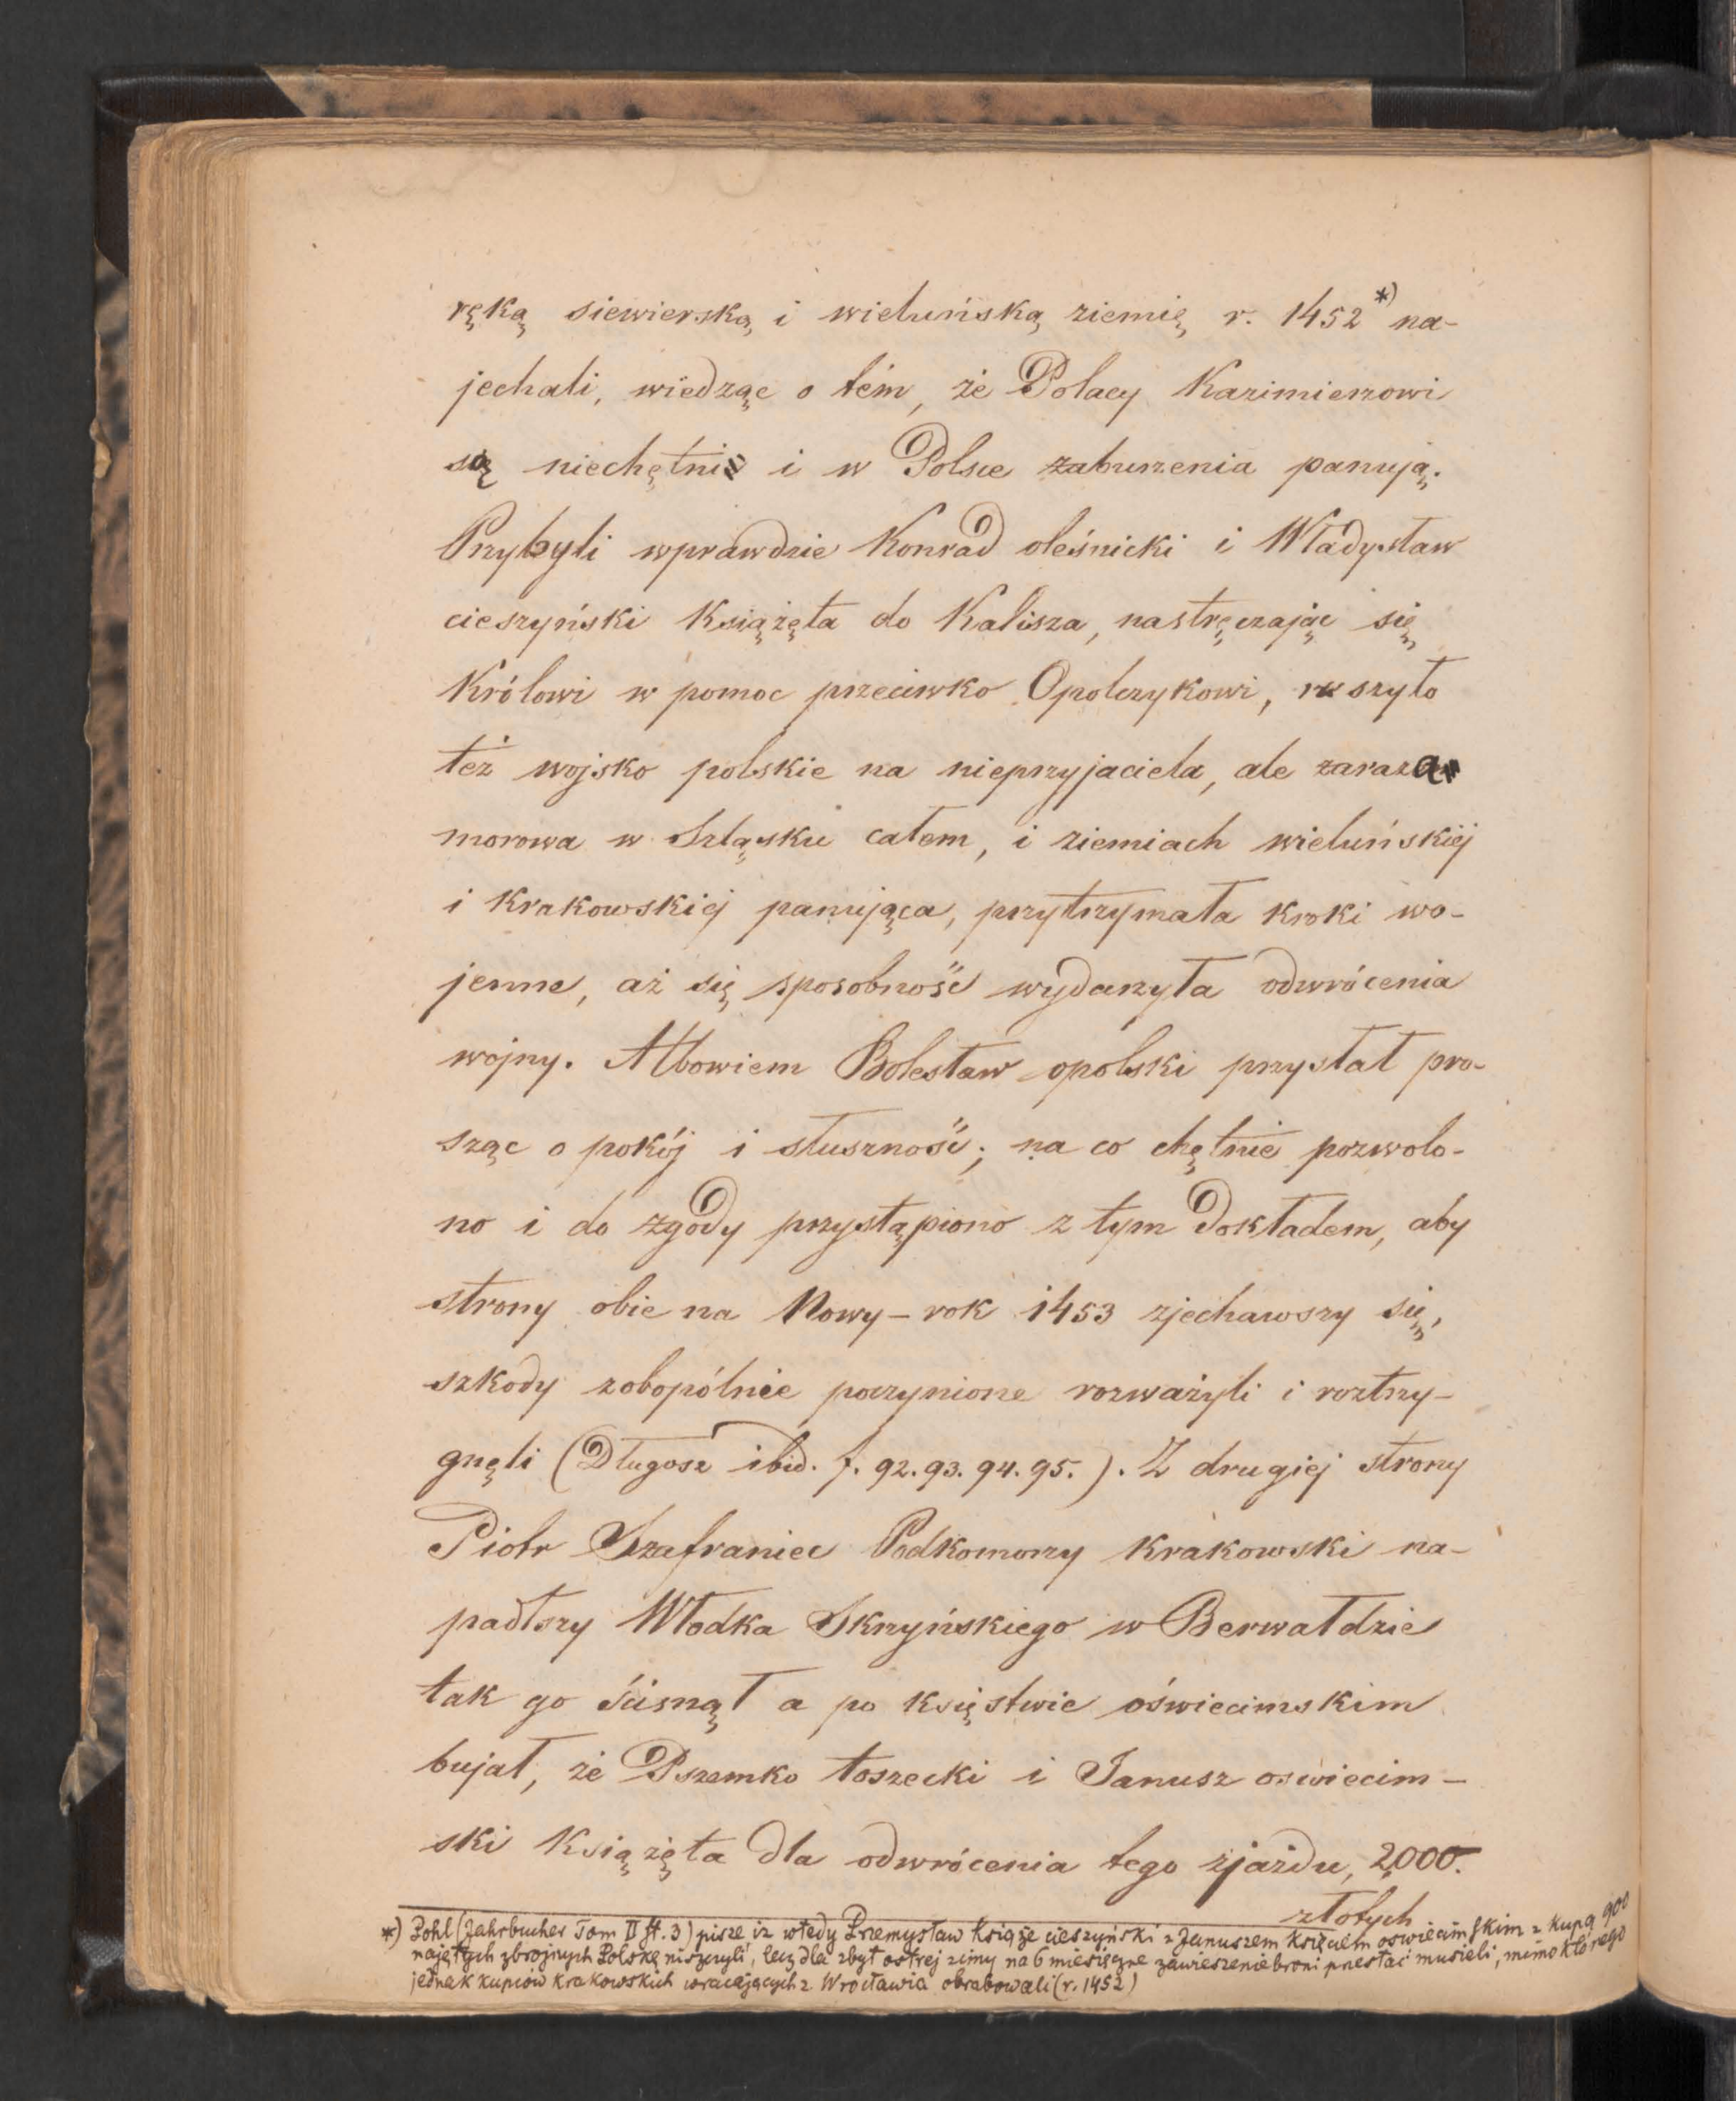 ręką siewierską i wieluńską ziemię r. 1452 *) na-
jechali, wiedząc o tém, że Polacy Kazimierzowi
są niechętni i w Polsce zaburzenia panują.
Przybyli wprawdzie Konrad oleśnicki i Władysław
cieszyński Książęta do Kalisza, nastręczając się
Królowi w pomoc przeciwko Opolczykowi, ruszyło
też wojsko polskie na nieprzyjaciela, ale zaraza
morowa w Szląsku całem, i ziemiach wieluńskiéj
i Krakowskiéj panująca, przytrzymała kroki wo-
jenne, aż się sposobność wydarzyła odwrócenia
wojny. Albowiem Bolesław opolski przystał pro-
sząc o pokój i słuszność; na co chętnie pozwolo-
no i do zgody przystąpiono z tym dokładem, aby
strony obie na Nowy-rok 1453 zjechawszy się,
szkody zobopólnie poczynione rozważyli i roztrzy-
gnęli (Długosz ibid. f. 92. 93. 94. 95.). Z drugiéj strony
Piotr Szafraniec Podkomorzy Krakowski na-
padłszy Włodka Skrzyńskiego w Berwałdzie
tak go ścisnął a po księstwie oświecimskim
bujał, że Pszemko toszecki i Janusz oświecim-
ski Książęta dla odwrócenia tego zjazdu, 2000.
złotych
*) Pohl (Jahrbucher Tom II st. 3) pisze iz wtedy Przemysław Książe cieszyński z Januszem Księciem oswiecimskim z kupą 900
najętych zbrojnych Polskę niszczyli, lecz dla zbyt ostrej zimy na 6 miesięczne zawieszenie broni przestać musieli, mimo którego
jednak kupców krakowskich wracających z Wrocławia obrabowali (r. 1452)